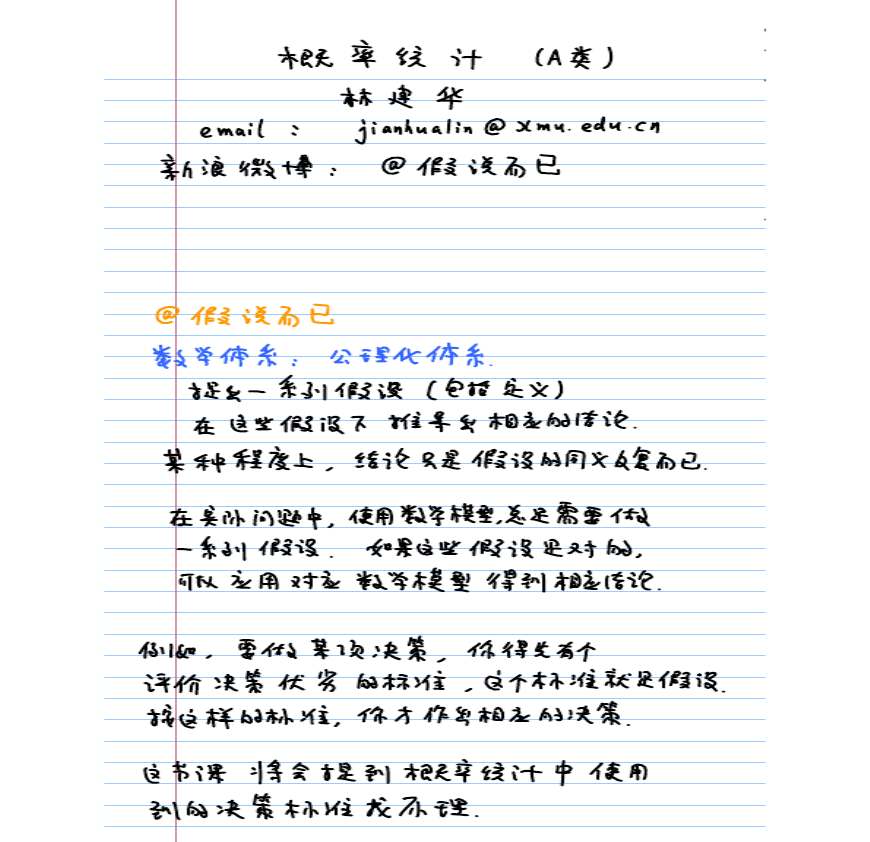 概率统计 (A类)
林建华
email : jianhualin@xmu.edu.cn
新浪微博: @假设而已
@假设而已
数学体系: 公理化体系.
提出一系列假设 (包括定义)
在这些假设下 推导出相应的结论.
某种程度上, 结论只是假设的同义反复而已.
在实际问题中, 使用数学模型,总是需要做
一系列假设. 如果这些假设是对的,
可以应用对应数学模型得到相应结论.
例如, 要做某项决策, 你得先有个
评价决策优劣的标准, 这个标准就是假设.
按这样的标准, 你才作出相应的决策.
这节课将会提到概率统计中使用
到的决策标准或原理.